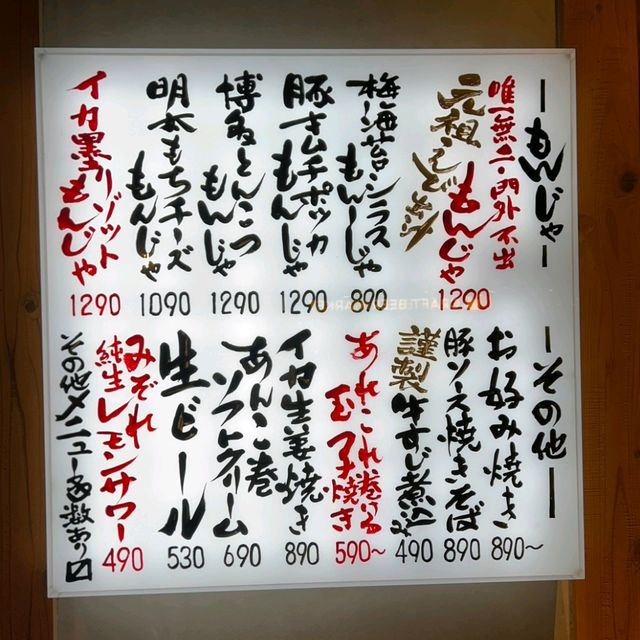 ーもんじゃー
唯一無二・門外不出
元祖
もんじゃ
1290
梅海苔シラス
もんじゃ
890
豚キムチポッカ
もんじゃ
1290
博多とんこつ
もんじゃ
1290
明太もちチーズ
もんじゃ
1090
イカ墨リゾット
もんじゃ
1290
ーその他ー
お好み焼き
890〜
豚ソース焼きそば
890
謹製牛すじ煮込み
490
あれこれ巻いる
玉子焼き
590〜
イカ生姜焼き
890
あんこ巻
ソフトクリーム
690
生ビール
530
みぞれ
純生レモンサワー
490
その他メニュー多数あり〼